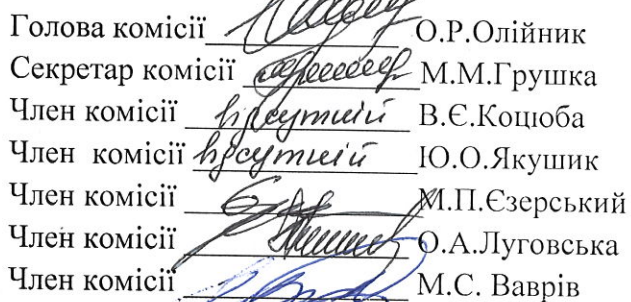 Голова комісії О.Р.Олійник
Секретар комісії М.М.Грушка
Член комісії В.Є.Коцюба
Член комісії Ю.О.Якушик
Член комісії М.П.Єзерський
Член комісії О.А.Луговська
Член комісії М.С. Ваврів